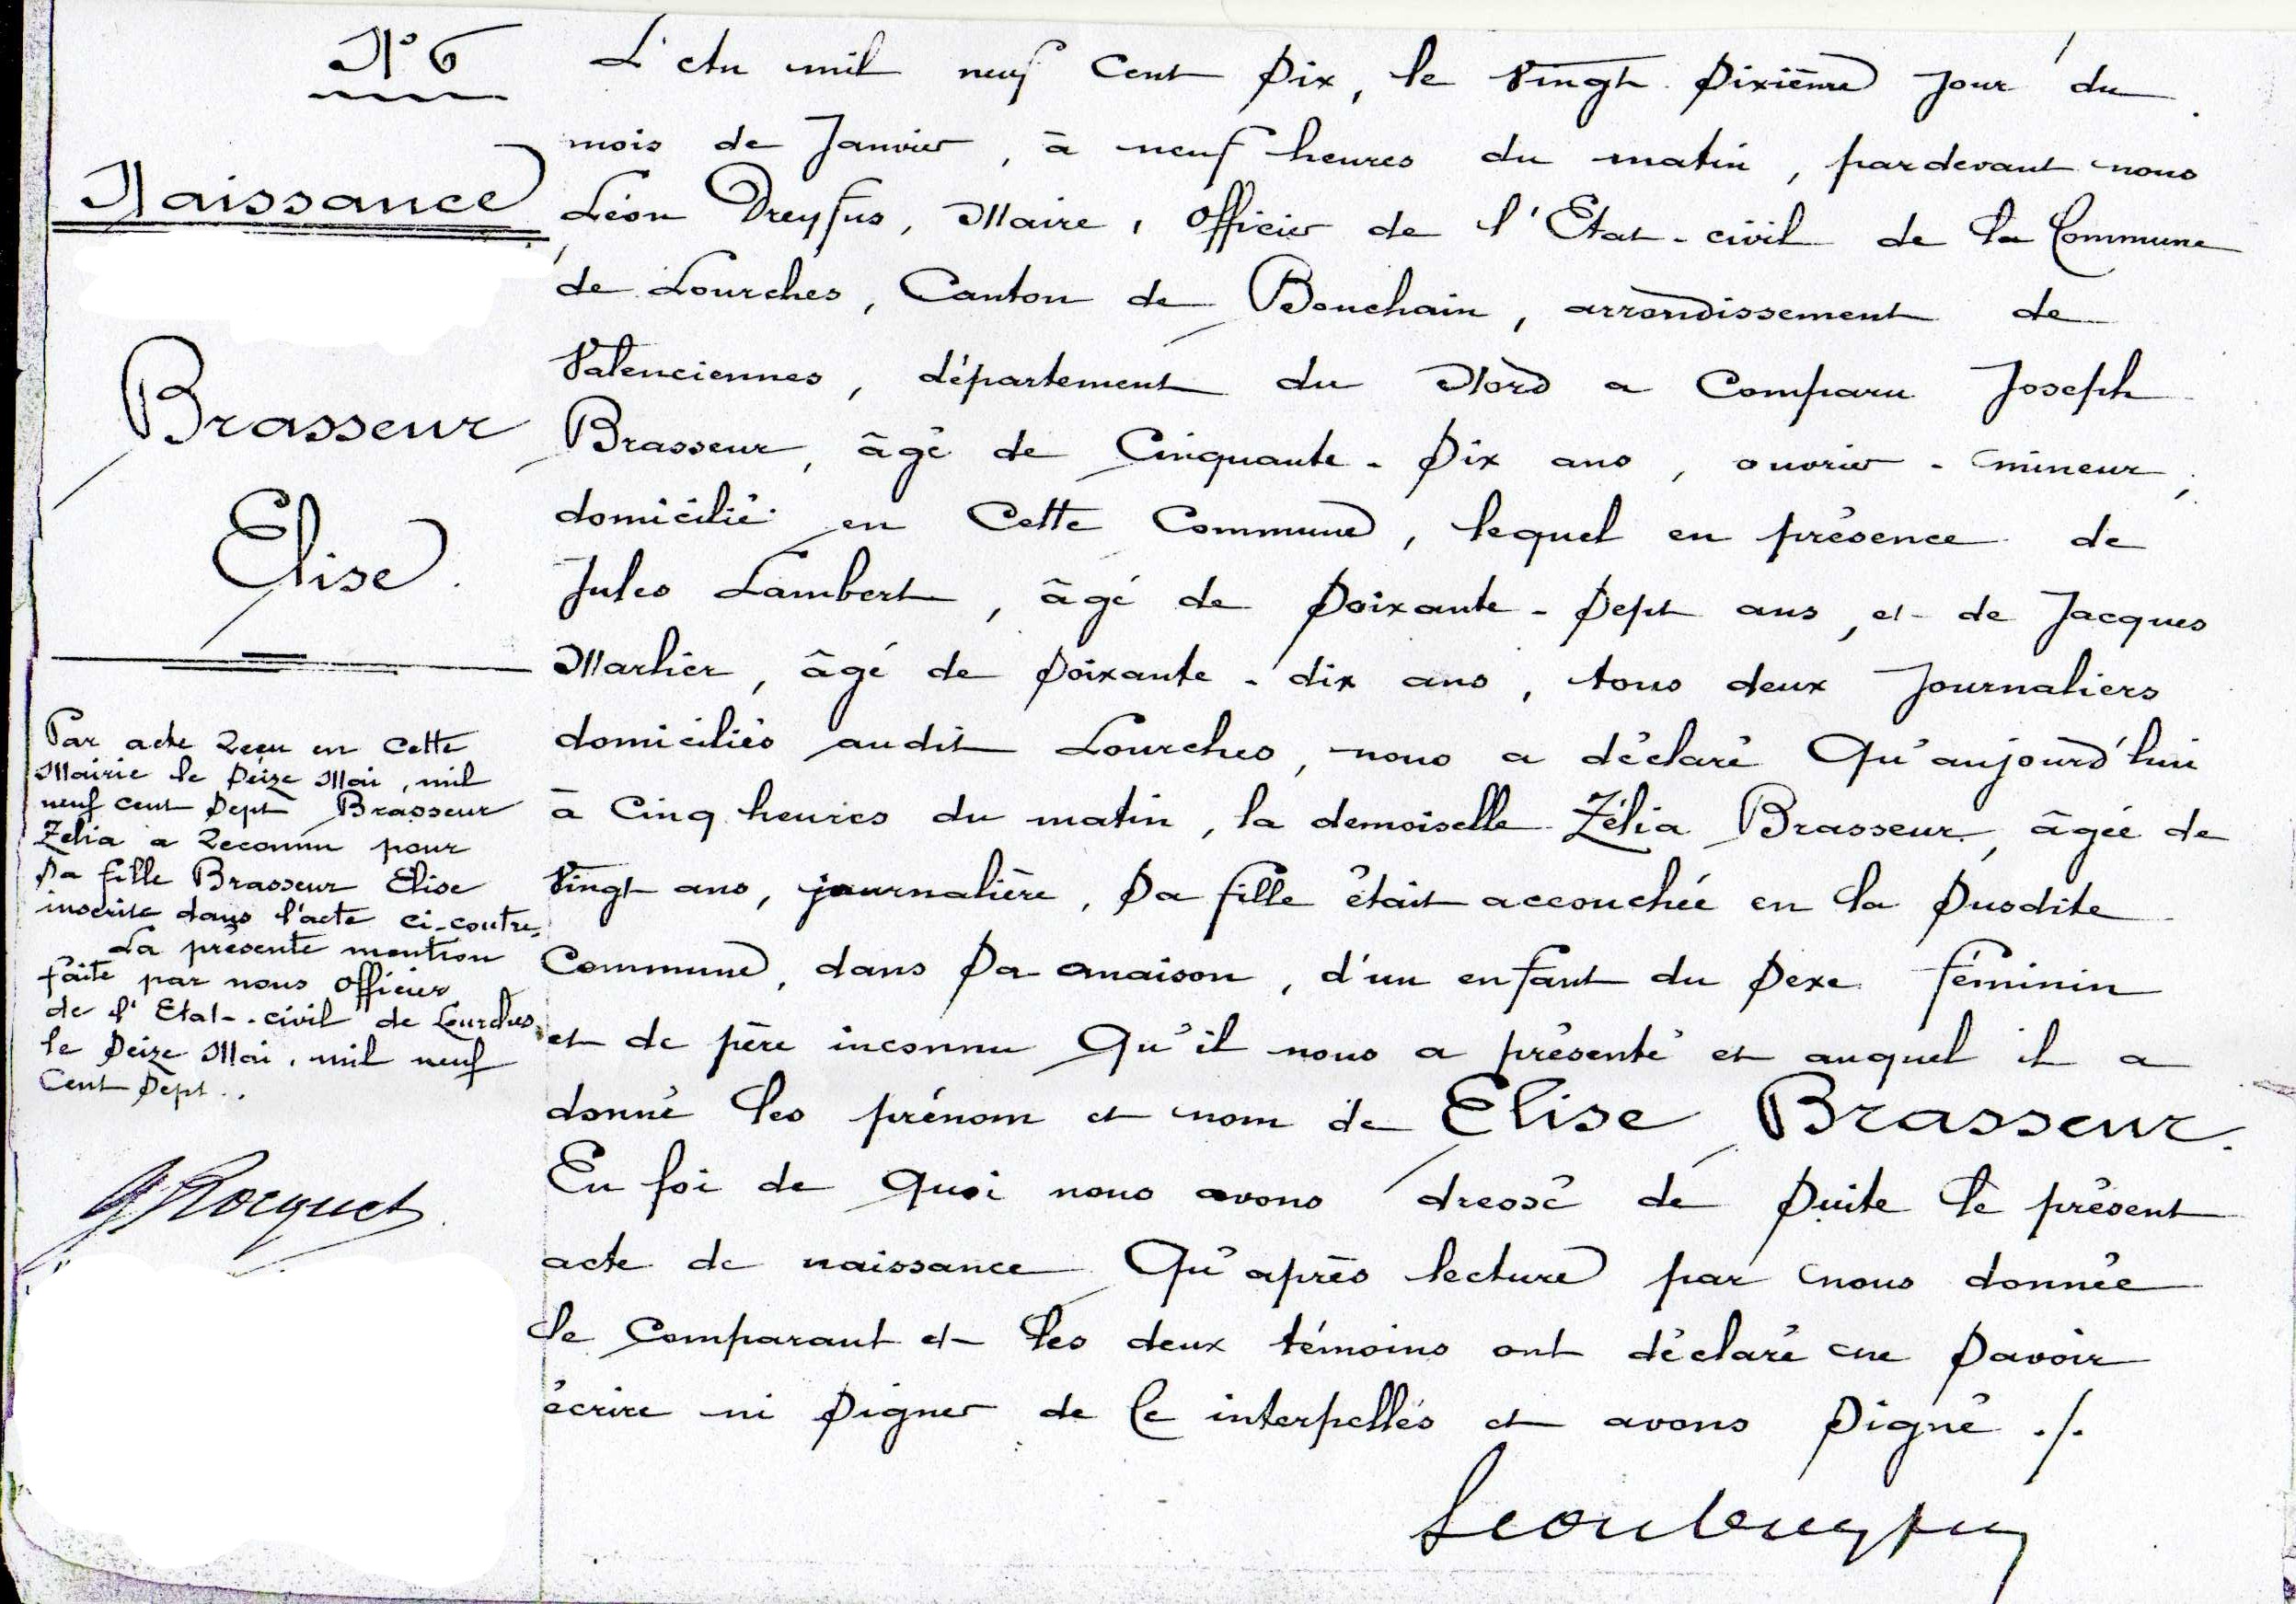 N° 6
Naissance
Brasseur
Elise
Par acte Reçu en cette
Mairie le Seize Mai, mil
neuf cent Sept Brasseur
Zélia a Reconnu pour
Sa fille Brasseur Elise
inscrite dans l'acte ci-contre.
La présente mention
faite par nous Officier
de l'Etat-civil de Lourches
le Seize Mai, mil neuf
Cent Sept..
G Rocquet
L'an mil neuf Cent Six, le Vingt Sixième Jour du
mois de Janvier, à neuf heures du matin, pardevant nous
Léon Dreyfus, Maire, Officier de l'Etat-civil de la Commune
de Lourches, Canton de Bouchain, arrondissement de
Valenciennes, département du Nord a Comparu Joseph
Brasseur, âgé de Cinquante-Six ans, ouvrier-mineur,
domicilié en Cette Commune, lequel en présence de
Jules Lambert, âgé de Soixante-Sept ans, et de Jacques
Marlier, âgé de Soixante-dix ans, tous deux Journaliers
domiciliés audit Lourches, nous a déclaré Qu'aujourd'hui
à Cinq heures du matin, la demoiselle Zélia Brasseur, âgée de
Vingt ans, journalière, Sa fille était accouchée en la Susdite
Commune, dans Sa maison, d'un enfant du Sexe féminin
et de père inconnu Qu'il nous a présenté et auquel il a
donné les prénom et nom de Elise Brasseur.
En foi de Quoi nous avons dressé de Suite le présent
acte de naissance Qu'après lecture par nous donnée
le Comparant et les deux témoins ont déclaré ne Savoir
écrire ni Signer de Ce interpellés et avons Signé ./.
Leon Dreyfus